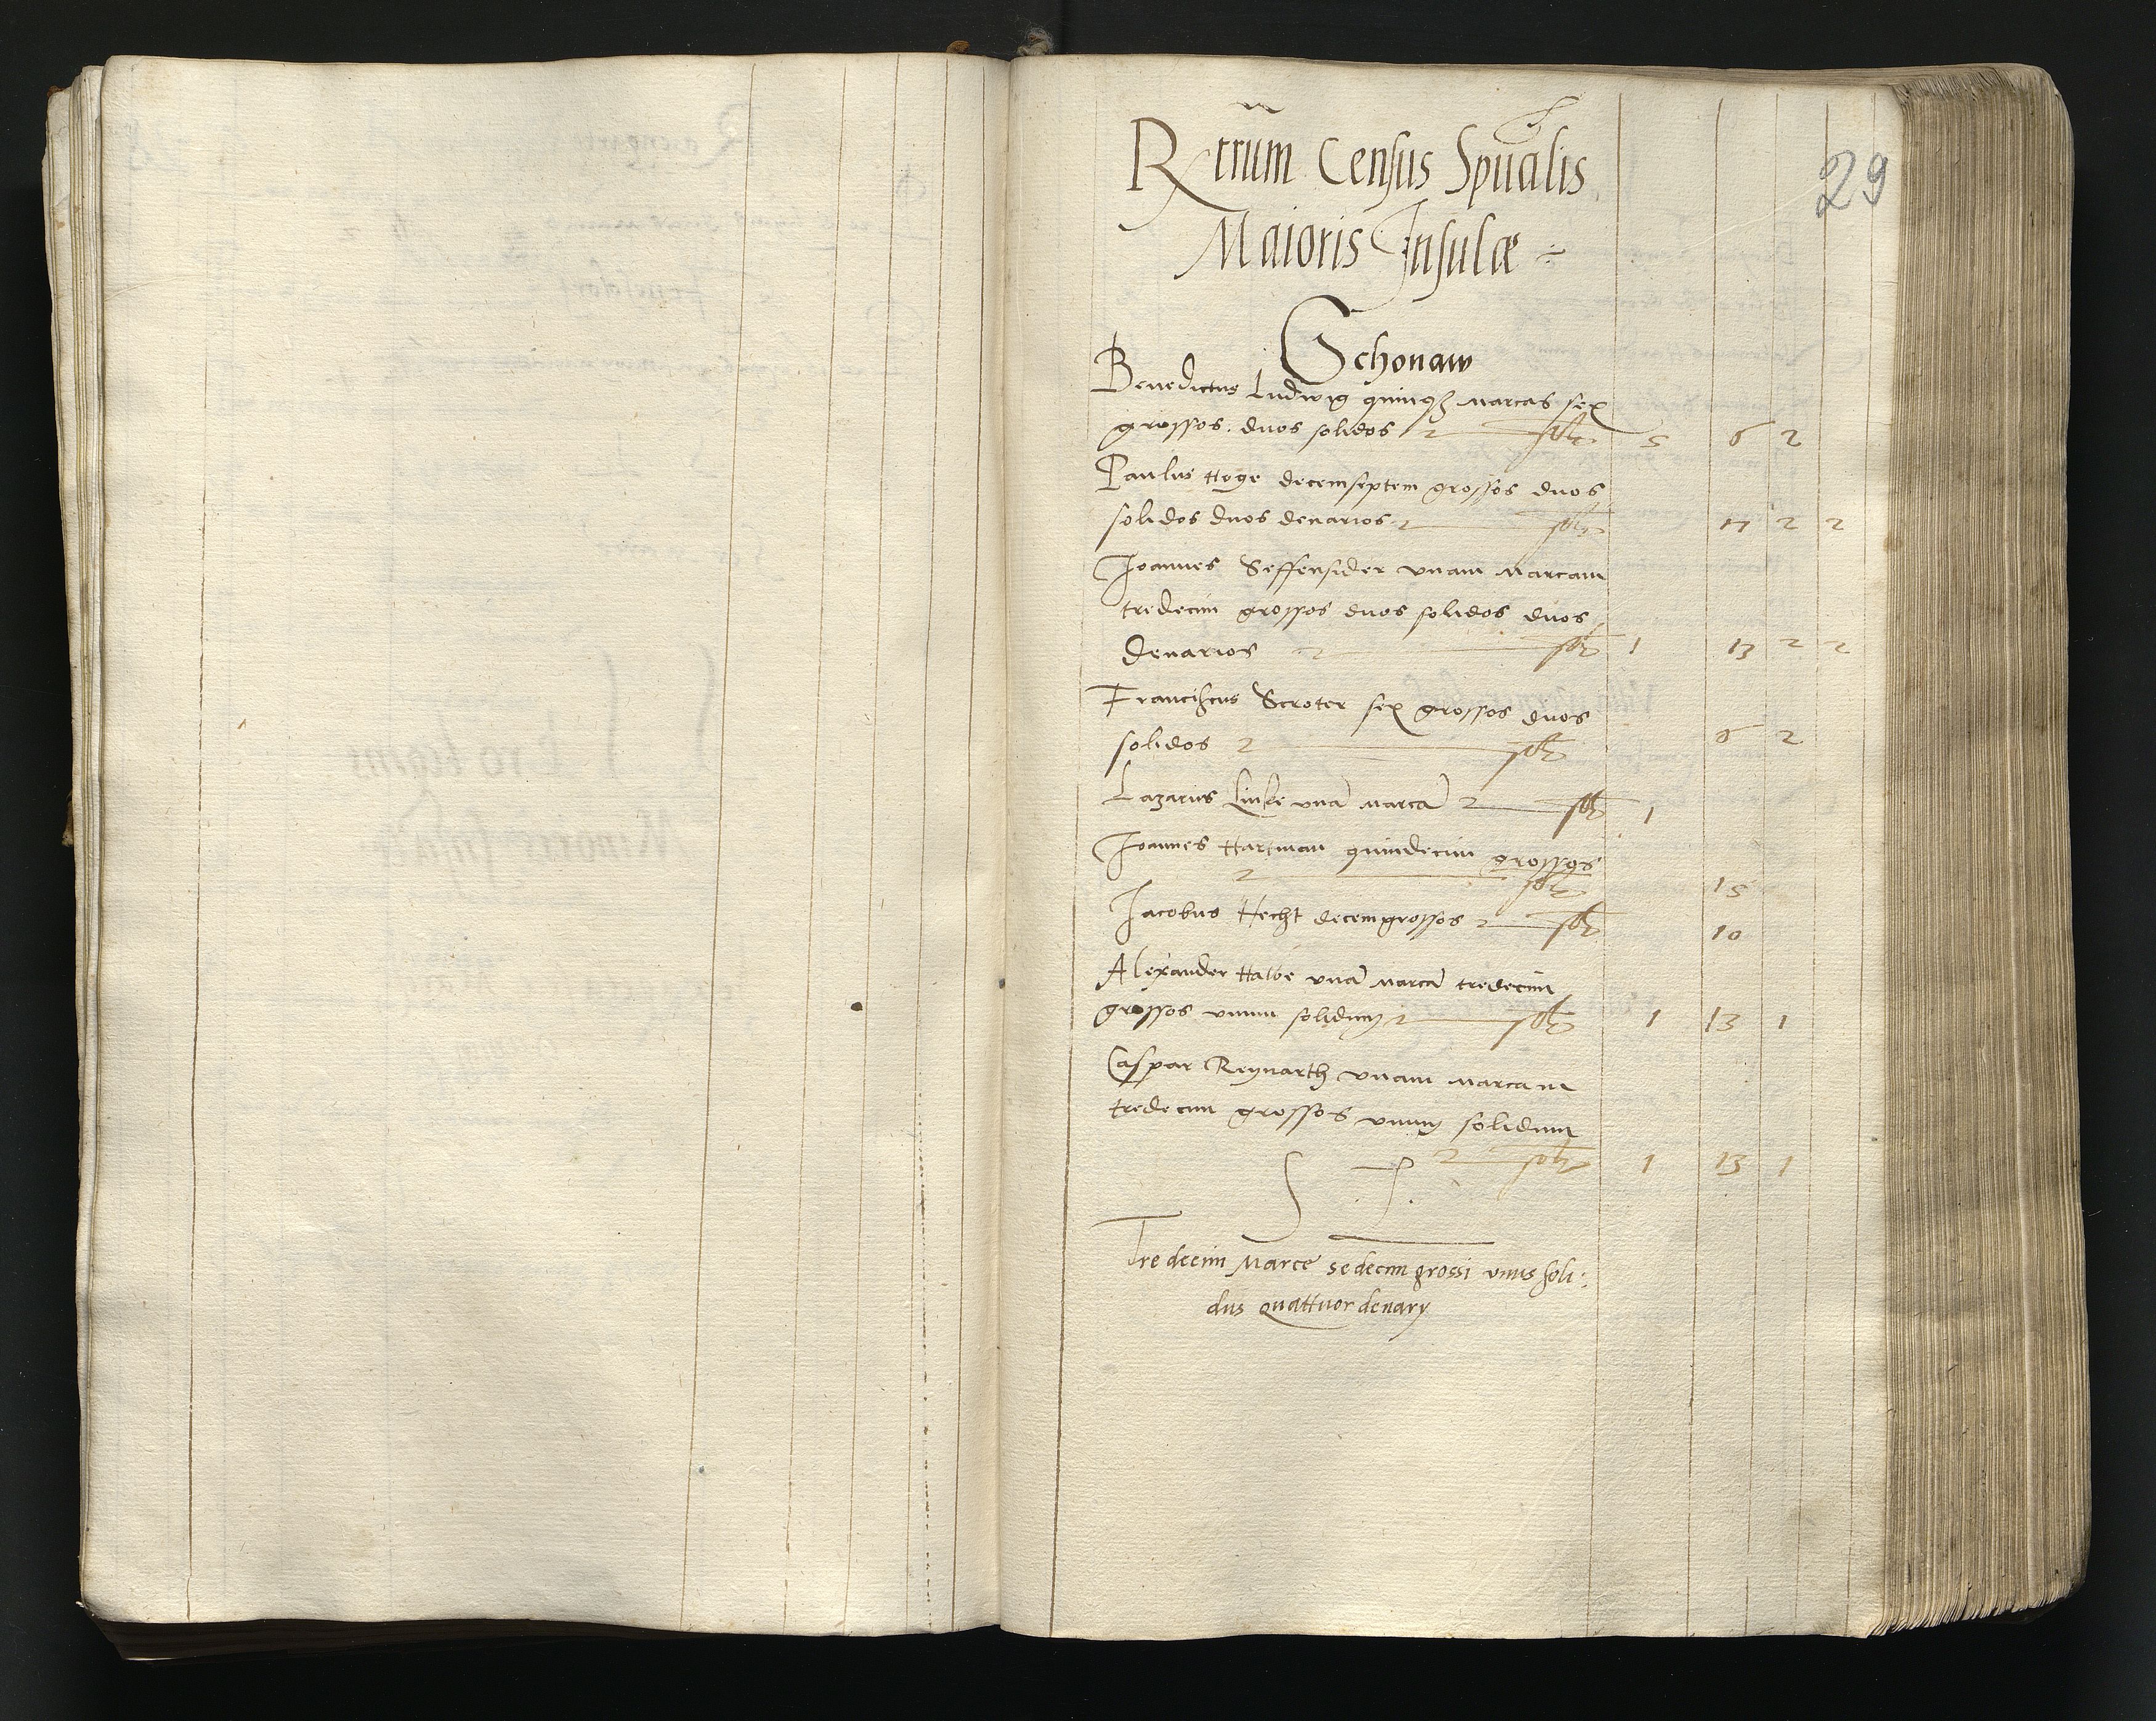 29
Rtrum Census Spualis
Maioris Insulæ
Schonaw
Benedictus Ludwig quinqz marcas sex
grossos duos solidos 5 6 2
Paulus Hoge decemseptem grossos duos
solidos duos denarios 17 2 2
Joannes Seffensider vnam marcam
tredecim grossos duos solidos duos
denarios 1 13 2 2
Franciscus Scroter sex grossos duos
solidos 6 2
Lazarus Linke vnā marcā 1
Joannes Hartman quindecim grossos
15
Jacobus Hecht decem grossos 10
Alexander Halbe vnā marcā tredecim
grossos vnum solidum 1 13 1
Caspar Reynarth vnam marcam
tredecim grossos vnum solidum
1 13 1
Tredecim Marce sedecim grossi vnus soli:
dus quattuor denary